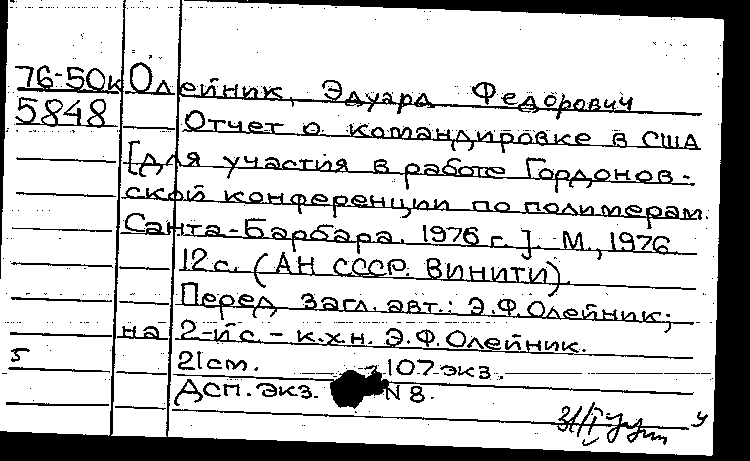 76-50к Олейник, Эдуард Федорович
5848 Отчет о командировке в США
[для участия в работе Гордонов-
ской конференции по полимерам.
Санта-Барбара. 1976 г.]. М., 1976
12с. (АН СССР. ВИНИТИ).
Перед загл. авт.: Э.Ф.Олейник;
на 2-й с. - к.х.н. Э.Ф.Олейник.
5 21см. 107 экз.
Дсп. экз. N 8.
31/I